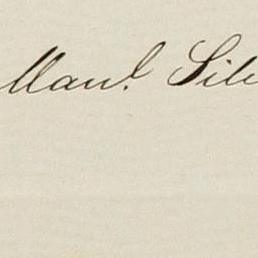 Manl. Silv